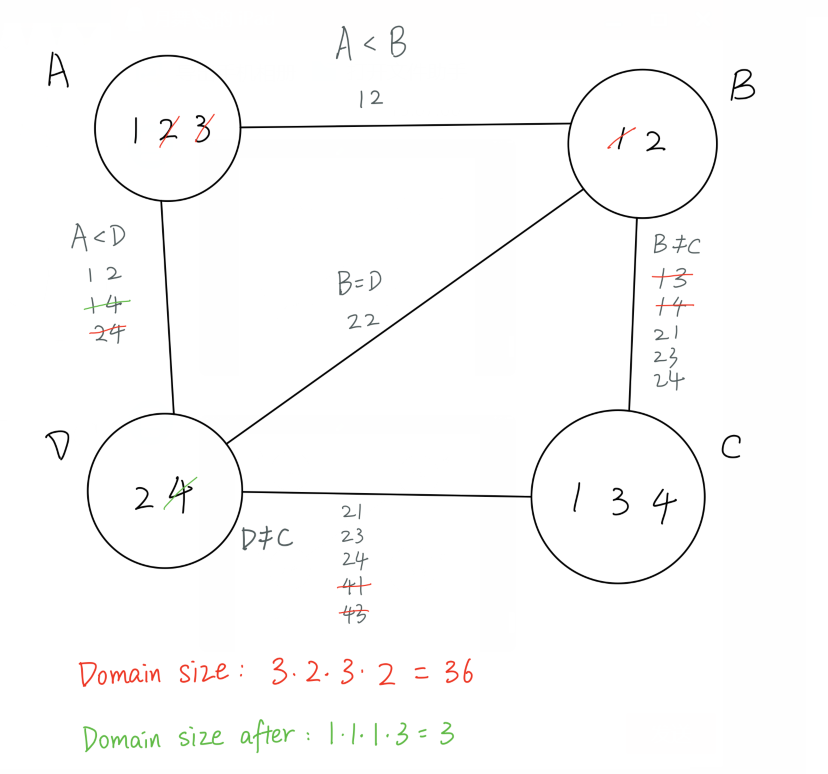 A < B
A
B
12
1 2 3
1 2
A<D
12
14
24
B=D
22
B≠C
13
14
21
23
24
D
C
2 4
1 3 4
D≠C
21
23
24
41
43
Domain size: 3·2·3·2 = 36
Domain size after: 1·1·1·3 = 3